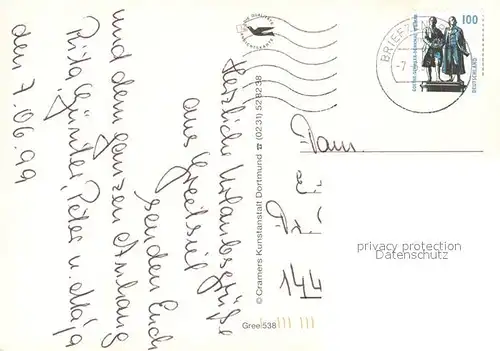 Herzliche Urlaubsgrüße
aus Greetsiel
senden Euch
und dem ganzen Anhang
Rita, Günter, Peter u. Maja
den 7.06.99
© Cramers Kunstanstalt Dortmund ☎ (0231) 528238
Gree 538
BRIEFZ
-7.
100
DEUTSCHLAND
Fam.
144
privacy protection
Datenschutz